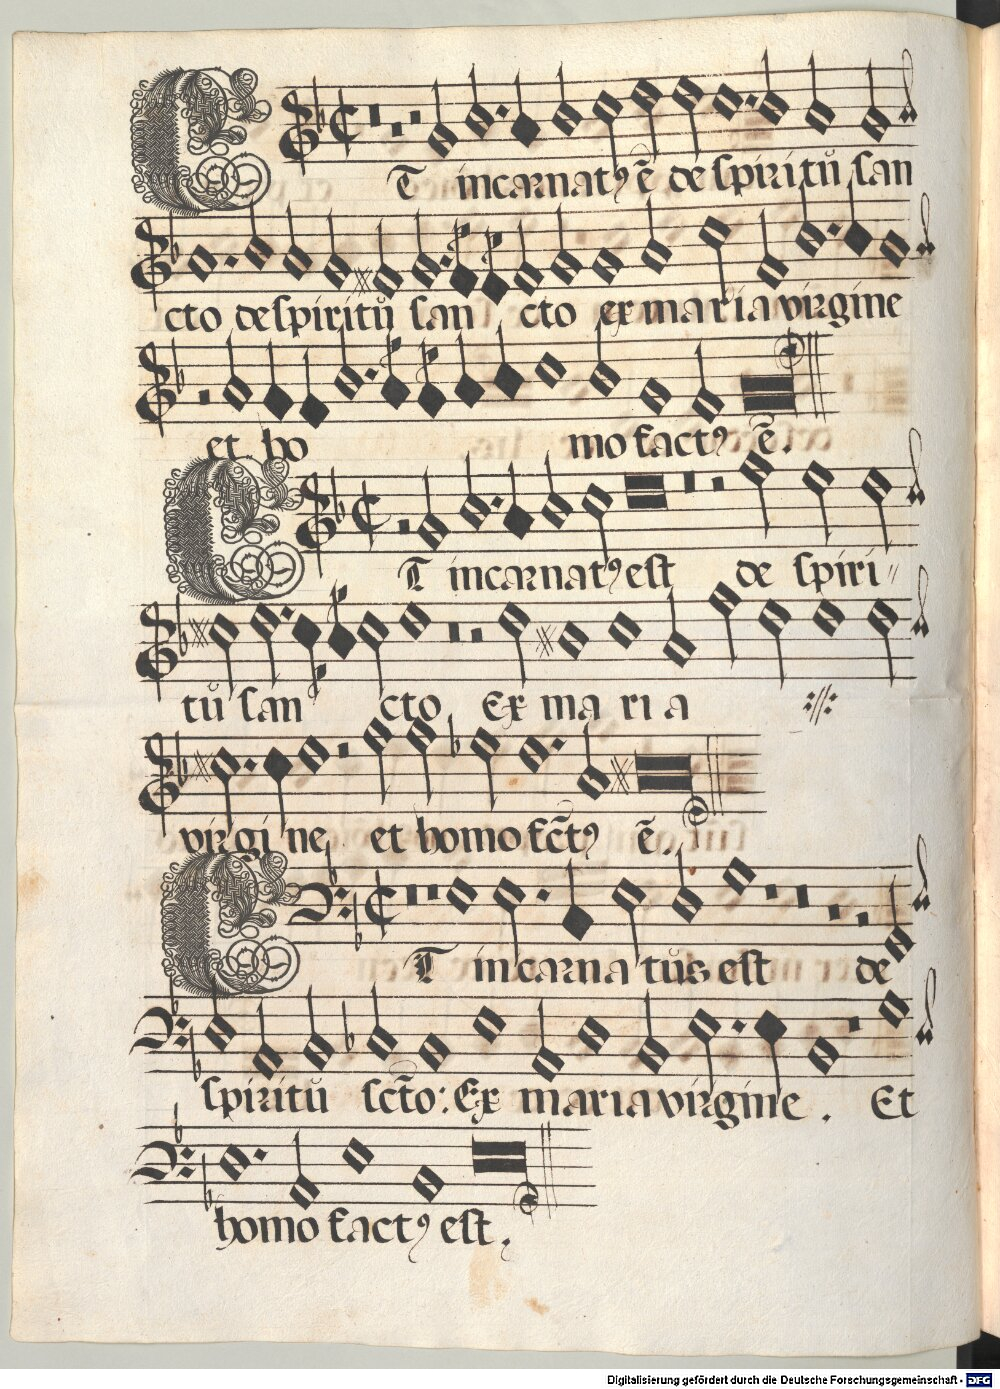 ET incarnatꝰ ē de spiritū san
cto de spiritū san cto ex maria virgine
et ho mo factꝰ ē.
ET incarnatꝰ est de spiri〃
tū san cto Ex ma ri a ://:
virgi ne et homo fc̄tꝰ ē.
ET incarna tūs est de
spiritū sc̄to: Ex maria virgine . Et
homo factꝰ est.
Digitalisierung gefördert durch die Deutsche Forschungsgemeinschaft - DFG